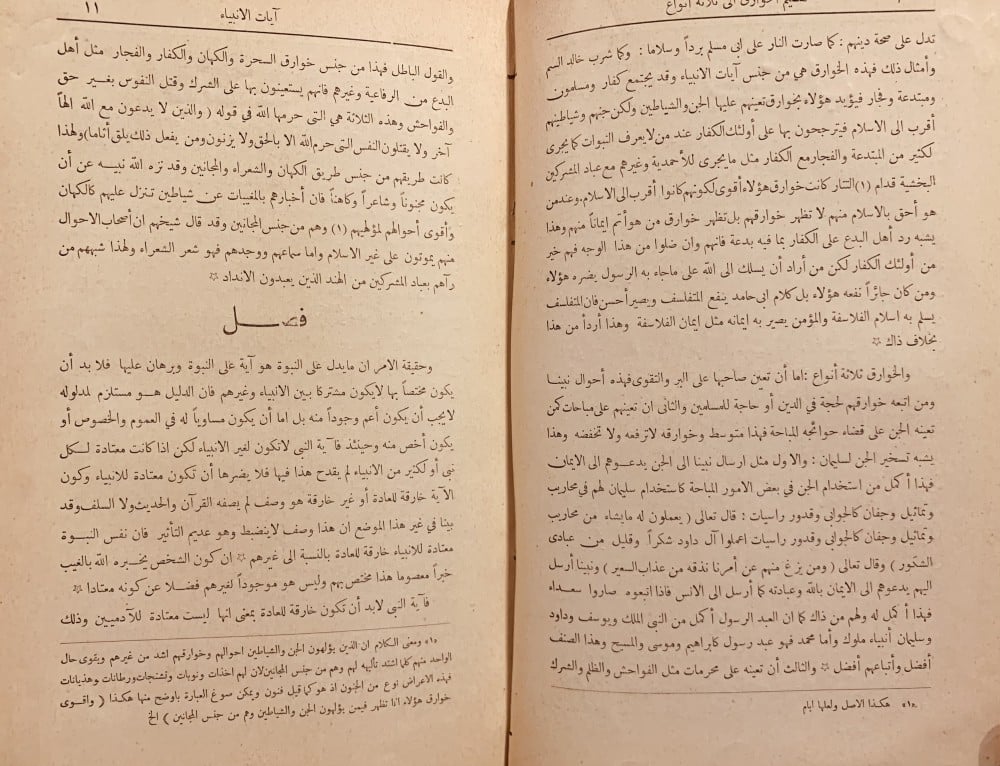 تقسيم الخوارق الى ثلاثة أنواع
تدل على صحة دينهم : كما صارت النار على ابى مسلم برداً وسلاما : وكما شرب خالد السم
وأمثال ذلك فهذه الخوارق هي من جنس آيات الانبياء وقد يجتمع كفار ومسلمون
ومبتدعة وفجار فيؤيد هؤلاء بخوارق تعينهم عليها الجن والشياطين ولكن جنهم وشياطينهم
أقرب الى الاسلام فيترجحون بها على أولئك الكفار عند من لا يعرف النبوات كما يجرى
لكثير من المبتدعة والفجار مع الكفار مثل ما يجرى للأحمدية وغيرهم مع عباد المشركين
البخشية قدام (١) التتار كانت خوارق هؤلاء أقوى لكونهم كانوا أقرب الى الاسلام، وعند من
هو أحق بالاسلام منهم لا تظهر خوارقهم بل تظهر خوارق من هو أتم ايماناً منهم وهذا
يشبه رد أهل البدع على الكفار بما فيه بدعة فانهم وان ضلوا من هذا الوجه فهم خير
من أولئك الكفار لكن من أراد أن يسلك الى الله على ماجاء به الرسول يضره هؤلاء
ومن كان جائراً نفعه هؤلاء بل كلام ابى حامد ينفع المتفلسف ويصير أحسن فان المتفلسف
يسلم به اسلام الفلاسفة والمؤمن يصير به ايمانه مثل ايمان الفلاسفة وهذا أردأ من هذا
بخلاف ذاك ✡
والخوارق ثلاثة أنواع : اما أن تعين صاحبها على البر والتقوى فهذه أحوال نبينا
ومن اتبعه خوارقهم لحجة في الدين أو حاجة للمسلمين والثانى ان تعينهم على مباحات كمن
تعينه الجن على قضاء حوائجه المباحة فهذا متوسط وخوارقه لاترفعه ولا تخفضه وهذا
يشبه تسخير الجن لسليمان : والاول مثل ارسال نبينا الى الجن يدعوهم الى الايمان
فهذا أكمل من استخدام الجن في بعض الامور المباحة كاستخدام سليمان لهم في محاريب
وتماثيل وجفان كالجوابى وقدور راسيات : قال تعالى ( يعملون له مايشاء من محاريب
وتماثيل وجفان كالجوابى وقدور راسيات اعملوا آل داود شكراً وقليل من عبادى
الشكور ) وقال تعالى ( ومن يزغ منهم عن أمرنا نذقه من عذاب السعير ) ونبينا أرسل
اليهم يدعوهم الى الايمان بالله وعبادته كما أرسل الى الانس فاذا اتبعوه صاروا سعداء
فهذا أكمل له ولهم من ذاك كما ان العبد الرسول أكمل من النبى الملك ويوسف وداود
وسليمان أنبياء ملوك وأما محمد فهو عبد رسول كابراهيم وموسى والمسيح وهذا الصنف
أفضل وأتباعهم أفضل ✡ والثالث أن تعينه على محرمات مثل الفواحش والظلم والشرك
«١» هكذا الاصل ولعلها ايام
آيات الانبياء ١١
والقول الباطل فهذا من جنس خوارق السحرة والكهان والكفار والفجار مثل أهل
البدع من الرفاعية وغيرهم فانهم يستعينون بها على الشرك وقتل النفوس بغير حق
والفواحش وهذه الثلاثة هي التى حرمها الله في قوله ( والذين لا يدعون مع الله الهاً
آخر ولا يقتلون النفس التى حرم الله الا بالحق ولا يزنون ومن يفعل ذلك يلق أثاما) ولهذا
كانت طريقهم من جنس طريق الكهان والشعراء والمجانين وقد نزه الله نبيه عن أن
يكون مجنوناً وشاعراً وكاهناً فان أخبارهم بالمغيبات عن شياطين تنزل عليهم كالكهان
وأقوى أحوالهم لمؤلهيهم (١) وهم من جنس المجانين وقد قال شيخهم ان أصحاب الاحوال
منهم يموتون على غير الاسلام واما سماعهم ووجدهم فهو شعر الشعراء ولهذا شبههم من
رآهم بعباد المشركين من الهند الذين يعبدون الانداد ✡
فصل
وحقيقة الامر ان مايدل على النبوة هو آية على النبوة وبرهان عليها فلا بد أن
يكون مختصاً بها لايكون مشتركا بين الانبياء وغيرهم فان الدليل هو مستلزم لمدلوله
لايجب أن يكون أعم وجوداً منه بل اما أن يكون مساوياً له في العموم والخصوص أو
يكون أخص منه وحينئذ فآية النبى لاتكون لغير الانبياء لكن اذا كانت معتادة لكل
نبى أو لكثير من الانبياء لم يقدح هذا فيها فلا يضرها أن تكون معتادة للانبياء وكون
الآية خارقة للعادة أو غير خارقة هو وصف لم يصفه القرآن والحديث ولا السلف وقد
بينا في غير هذا الموضع ان هذا وصف لاينضبط وهو عديم التأثير فان نفس النبوة
معتادة للانبياء خارقة للعادة بالنسبة الى غيرهم ✡ ان كون الشخص يخبره الله بالغيب
خبراً معصوما هذا مختص بهم وليس هو موجوداً لغيرهم فضلا عن كونه معتادا ✡
فآية النبى لابد أن تكون خارقة للعادة بمعنى انها ليست معتادة للآدميين وذلك
«١» ومعنى الكلام ان الذين يؤلهون الجن والشياطين احوالهم وخوارقهم اشد من غيرهم ويقوى حال
الواحد منهم كلما اشتد تأليهه لهم وهم من جنس المجانين لان لهم اخذات ونوبات وتشنجات ورطانات وهذيانات
فهذه الاعراض نوع من الجنون اذ هو كما قيل فنون ويمكن سوغ العبارة باوضح منها هكذا ( واقوى
خوارق هؤلاء انما تظهر فيمن يؤلهون الجن والشياطين وهم من جنس المجانين ) الخ